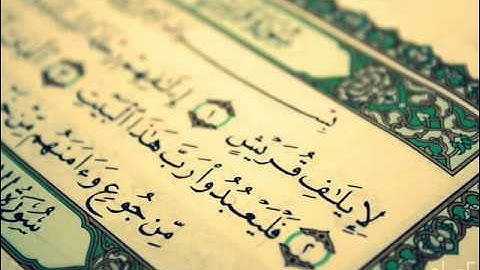 بِسْ
لِإِيلَٰفِ قُرَيْشٍ ١ إِۦلَٰفِهِمْ
٢ فَلْيَعْبُدُوا۟ رَبَّ هَٰذَا ٱلْبَيْتِ ٣
مِّن جُوعٍ وَءَامَنَهُم مِّنْ
سُورَةُ